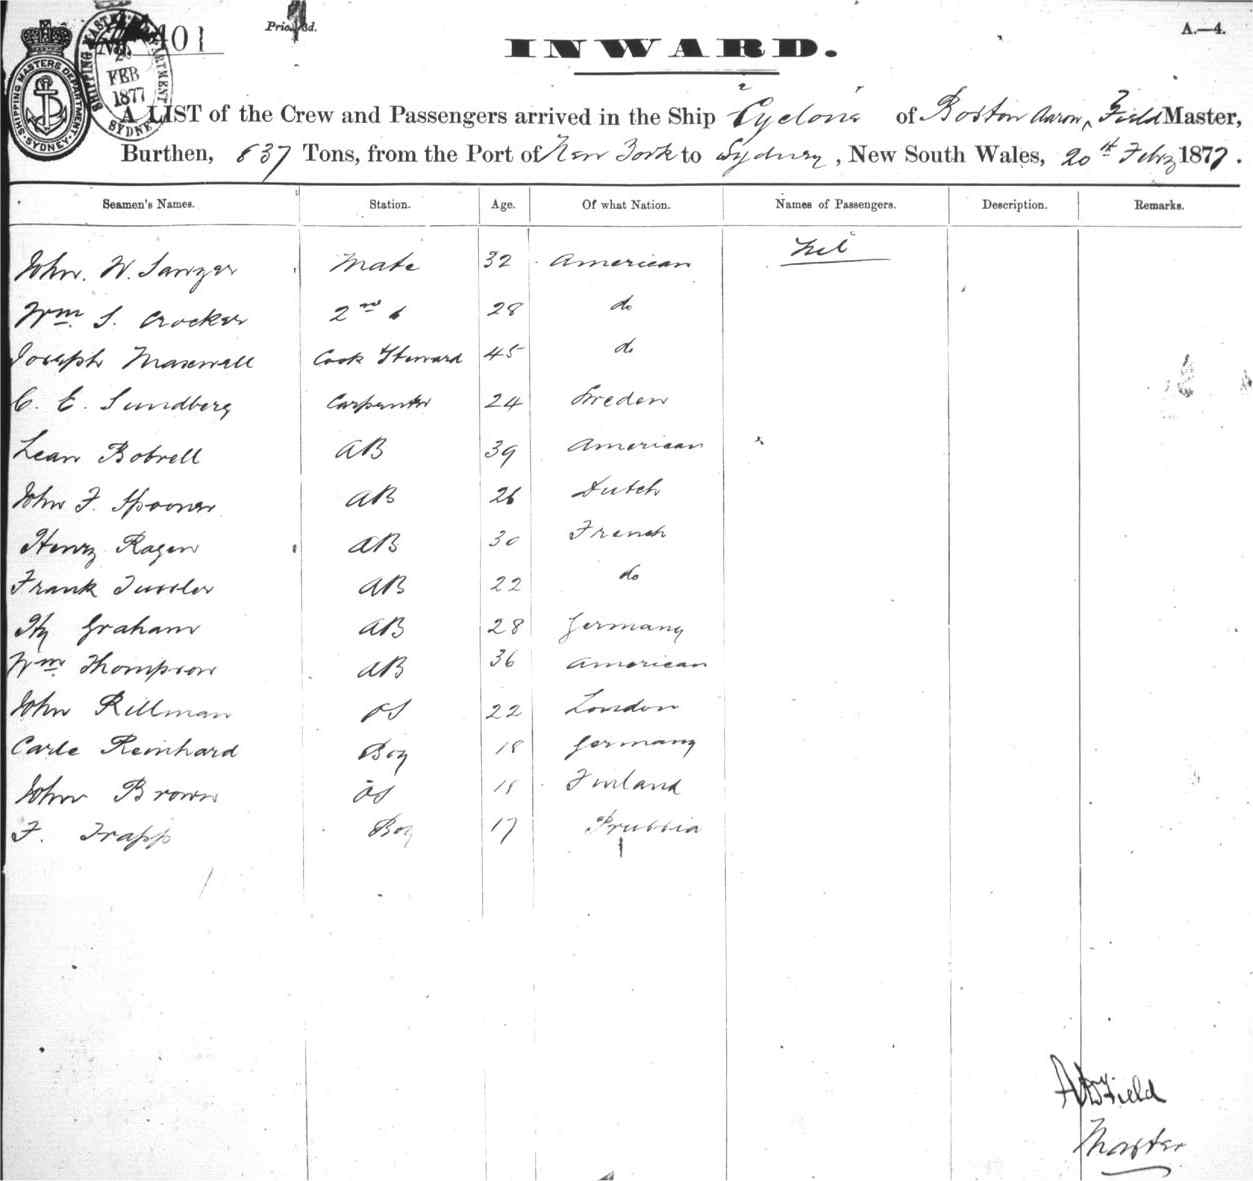 101
A.—4.
SHIPPING MASTERS DEPARTMENT. SYDNEY.
FEB
1877
SYDNEY
INWARD.
A LIST of the Crew and Passengers arrived in the Ship Cyclone of Boston Aaron Field Master,
Burthen, 637 Tons, from the Port of New York to Sydney, New South Wales, 20th Feby 1877.
Seamen's Names. Station. Age. Of what Nation. Names of Passengers. Description. Remarks.
John. W. Sawyer Mate 32 American Nil
Wm. S. Crocker 2nd 28 do
Joseph Maxwell Cook Steward 45 do
C. E. Sundberg Carpenter 24 Sweden
Lean Bobrell AB 39 American
John F. Spooner AB 26 Dutch
Henry Ragen AB 30 French
Frank AB 22 do
Hy Graham AB 28 Germany
Wm. Thompson AB 36 American
John Rillman OS 22 London
Carle Reinhard Boy 18 Germany
John Brown OS 18 Finland
F. Trapp Boy 17 Prussia
Field
Master